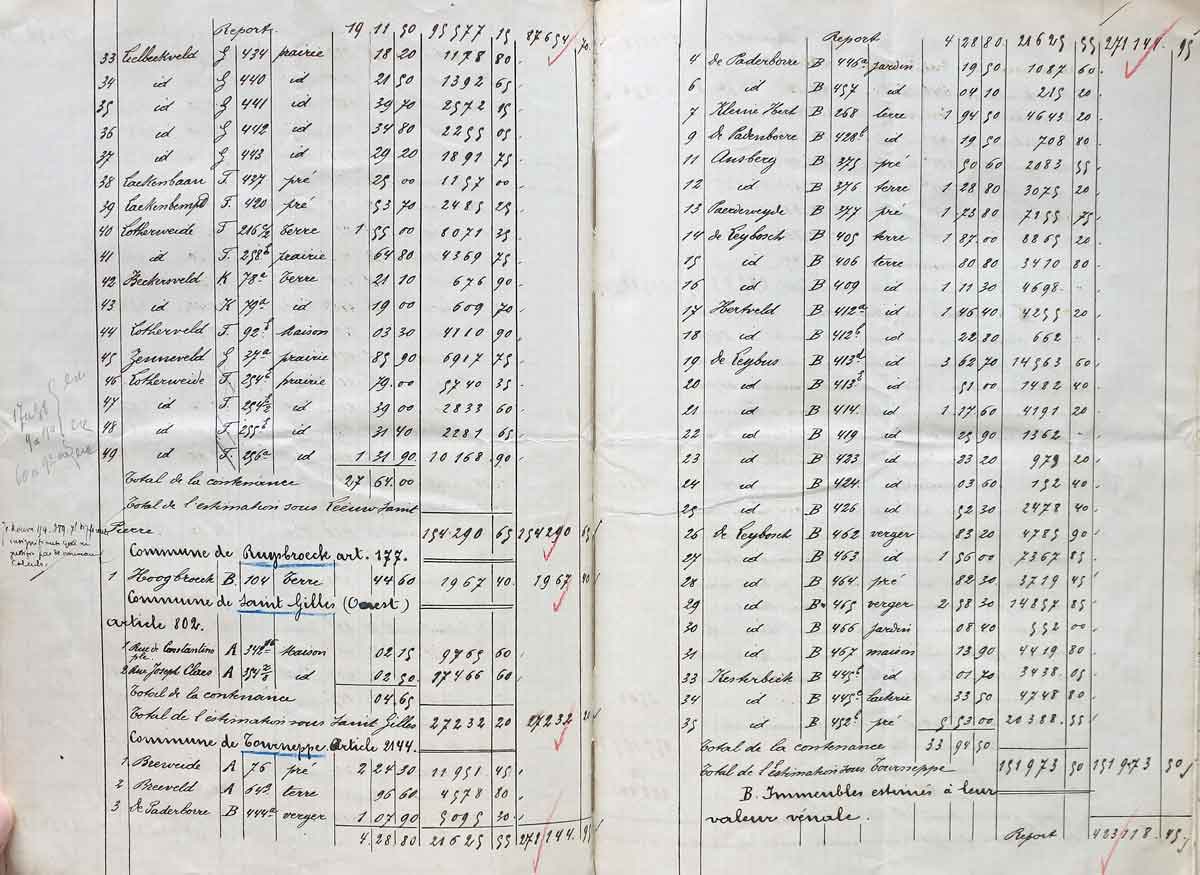 Report. 19 11 50 95577 15 87654 70
33 Eselbeekveld G 434 prairie 18 20 1178 80
34 id G 440 id 21 50 1392 65
35 id G 441 id 39 70 2572 15
36 id G 442 id 34 80 2255 05
37 id G 443 id 29 20 1891 75
38 Laekenbaan F. 427 pré 25 00 1157 00
39 Laekenbempd F. 420 pré 53 70 2485 25
40 Lotherweide F 216 Terre 1 55 00 8071 35
41 id F. 258b prairie 64 80 4369 75
42 Beckersveld K 78a Terre 21 10 676 90
43 id K 79a id 19 00 609 70
44 Lotherveld F. 92 Maison 03 30 4810 90
45 Zenneveld G 37a prairie 85 90 6917 75
46 Lotherweide F. 254 prairie 79.00 5740 35
47 id F. 254 id 39 00 2833 60
48 id F. 255 id 31 40 2281 65
49 id F. 256a id 1 31 90 10168 90
Total de la contenance 27 64.00
Total de l'estimation sous Leeuw Saint
Pierre. 154290 65 154290 65
Commune de Ruysbroeck art. 177.
1 Hoogbroeck B. 104 Terre 44 60 1967 40 1967 40
Commune de Saint Gilles (Ouest)
article 802.
1 Rue de Constantino
ple A 342 Maison 02 15 9765 60
2 Rue Joseph Claes A 354 id 02 50 17466 60
Total de la contenance 04 65
Total de l'estimation sous Saint Gilles 27232 20 27232 20
Commune de Tourneppe. Article 2144.
1 Beerweide A 76 pré 2 24 30 11951 45
2 Breeveld A 642 terre 96 60 4578 80
3 De Paderborre B 444a verger 1 07 90 5095 30
4 28 80 21625 55 271144 95
Report 4 28 80 21625 55 271144 95
4 de Paderborre B 446a jardin 19 50 1087 60
6 id B 457 id 04 10 215 20
7 Kleine Hert B 268 terre 1 94 50 4643 20
9 de Padenborre B 428b id 19 50 708 80
11 Ansberg B 375 pré 50 60 2083 55
12 id B 376 terre 1 28 80 3075 20
13 Paerdeweyde B 377 pré 1 73 80 7155 75
14 de Leybosch B 405 terre 1 87.00 8865 20
15 id B 406 terre 80 80 3410 80
16 id B 409 id 1 11 30 4698
17 Hertveld B 412a id 1 46 40 4255 20
18 id B 412b id 22 80 662
19 de Leybus B 413d id 3 62 70 14563 60
20 id B 413 id 51 00 1482 40
21 id B 414. id 1 17 60 4191 20
22 id B 419 id 25 90 1362
23 id B 423 id 23 20 979 20
24 id B 424. id 03 60 152 40
25 id B 426 id 52 30 2478 40
26 de Leybosch B 462 verger 83 20 4785 90
27 id B 463 id 1 56 00 7367 85
28 id B 464. pré 82 30 3719 45
29 id B 465 verger 2 58 30 14857 85
30 id B 466 jardin 08 40 552 00
31 id B 467 maison 13 90 4419 80
33 Kesterbeek B 445b id 01 70 3438 05
34 id B 445c laiterie 33 50 4748 80
35 id B 452b pré 5 53 00 20388 55
Total de la contenance 33 94 50
Total de l'Estimation sous Tourneppe 151973 50 151973 50
B. Immeubles estimés à leur
valeur vénale.
Report 423118 45